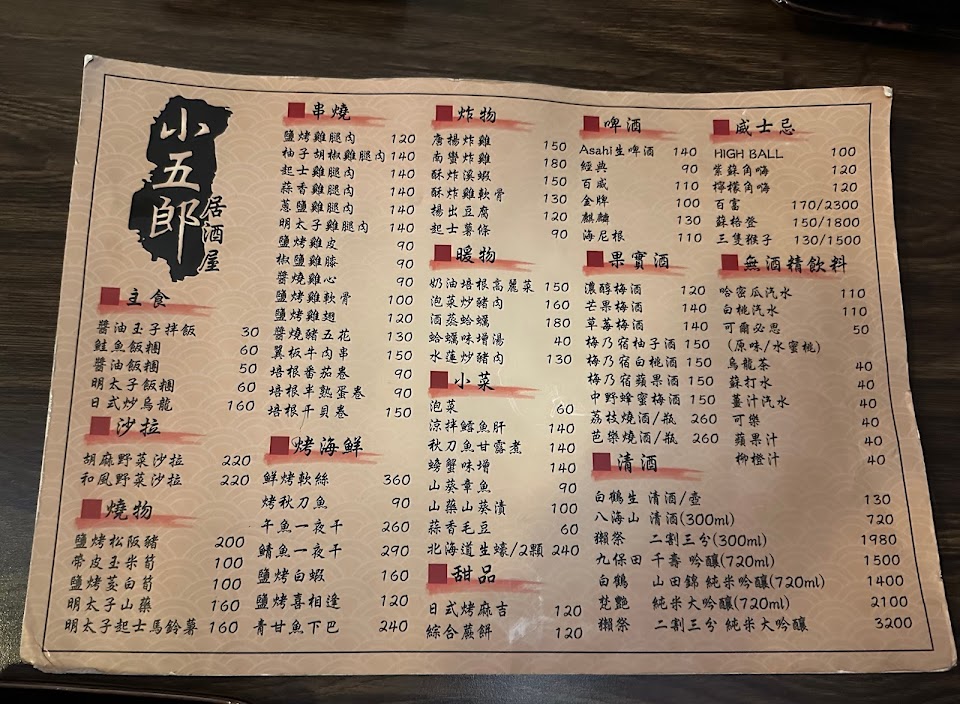 小五郎
居酒屋
主食
醬油玉子拌飯 30
鮭魚飯糰 60
醬油飯糰 50
明太子飯糰 60
日式炒烏龍 160
沙拉
胡麻野菜沙拉 220
和風野菜沙拉 220
燒物
鹽烤松阪豬 200
帶皮玉米筍 100
鹽烤茭白筍 100
明太子山藥 160
明太子起士馬鈴薯 160
串燒
鹽烤雞腿肉 120
柚子胡椒雞腿肉 140
起士雞腿肉 140
蒜香雞腿肉 140
蔥鹽雞腿肉 140
明太子雞腿肉 140
鹽烤雞皮 90
椒鹽雞膝 90
醬燒雞心 90
鹽烤雞軟骨 100
鹽烤雞翅 120
醬燒豬五花 130
翼板牛肉串 150
培根番茄卷 90
培根半熟蛋卷 90
培根干貝卷 150
烤海鮮
鮮烤軟絲 360
烤秋刀魚 90
午魚一夜干 260
鯖魚一夜干 290
鹽烤白蝦 160
鹽烤喜相逢 120
青甘魚下巴 240
炸物
唐揚炸雞 150
南蠻炸雞 180
酥炸溪蝦 150
酥炸雞軟骨 130
揚出豆腐 120
起士薯條 90
暖物
奶油培根高麗菜 150
泡菜炒豬肉 160
酒蒸蛤蠣 180
蛤蠣味增湯 40
水蓮炒豬肉 130
小菜
泡菜 60
涼拌鱈魚肝 140
秋刀魚甘露煮 140
螃蟹味增 140
山葵章魚 90
山藥山葵漬 100
蒜香毛豆 60
北海道生蠔/2顆 240
甜品
日式烤麻吉 120
綜合蕨餅 120
啤酒
Asahi生啤酒 140
經典 90
百威 110
金牌 100
麒麟 130
海尼根 110
果實酒
濃醇梅酒 120
芒果梅酒 140
草莓梅酒 140
梅乃宿柚子酒 150
梅乃宿白桃酒 150
梅乃宿蘋果酒 150
中野蜂蜜梅酒 150
荔枝燒酒/瓶 260
芭樂燒酒/瓶 260
清酒
白鶴生 清酒/壺 130
八海山 清酒(300ml) 720
獺祭 二割三分(300ml) 1980
九保田 千壽 吟釀(720ml) 1500
白鶴 山田錦 純米吟釀(720ml) 1400
梵艷 純米大吟釀(720ml) 2100
獺祭 二割三分 純米大吟釀 3200
威士忌
HIGH BALL 100
紫蘇角嗨 120
檸檬角嗨 120
百富 170/2300
蘇格登 150/1800
三隻猴子 130/1500
無酒精飲料
哈密瓜汽水 110
白桃汽水 110
可爾必思 50
(原味/水蜜桃)
烏龍茶 40
蘇打水 40
薑汁汽水 40
可樂 40
蘋果汁 40
柳橙汁 40